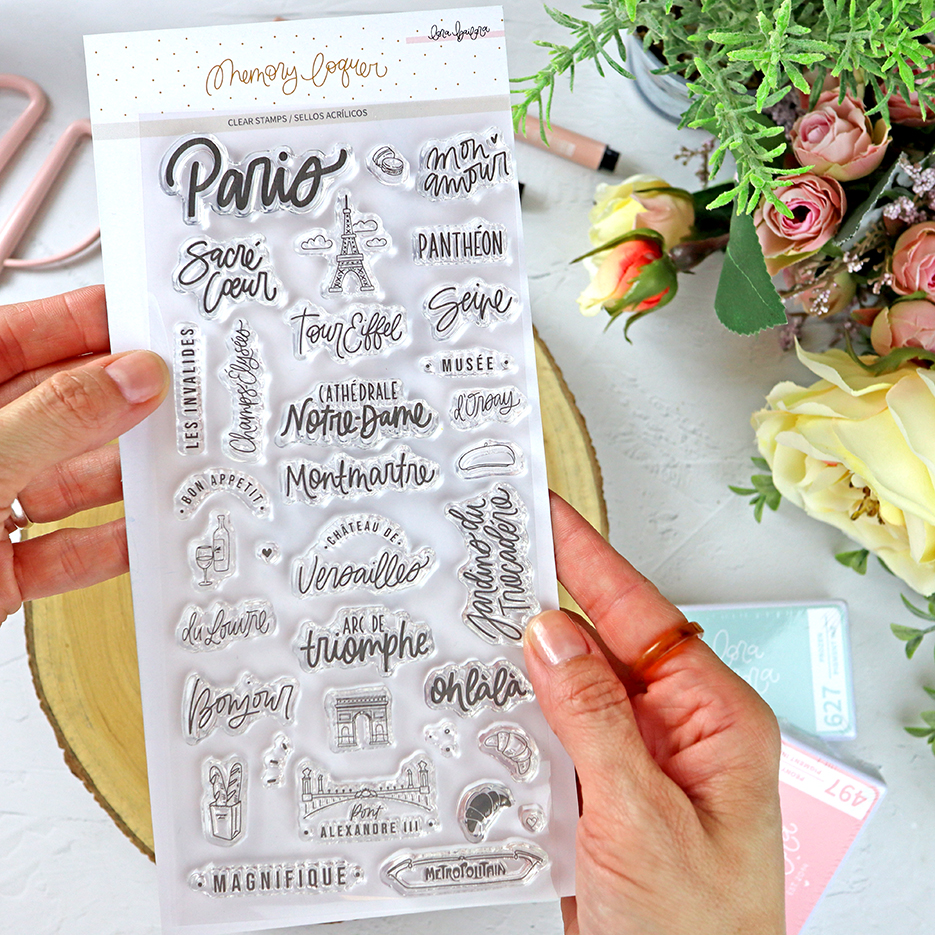 lora bailora
memory loquer
CLEAR STAMPS / SELLOS ACRÍLICOS
Paris
mon
amour
Sacré
Cœur
PANTHÉON
Seine
Tour Eiffel
LES INVALIDES
Champs Élysées
MUSÉE
d'Orsay
CATHÉDRALE
Notre-Dame
Montmartre
BON APPETIT
CHÂTEAU DE
Versailles
Jardins du
Trocadéro
du Louvre
ARC DE
triomphe
Bonjour
oh là là
Pont
ALEXANDRE III
MAGNIFIQUE
METROPOLITAIN
627
497